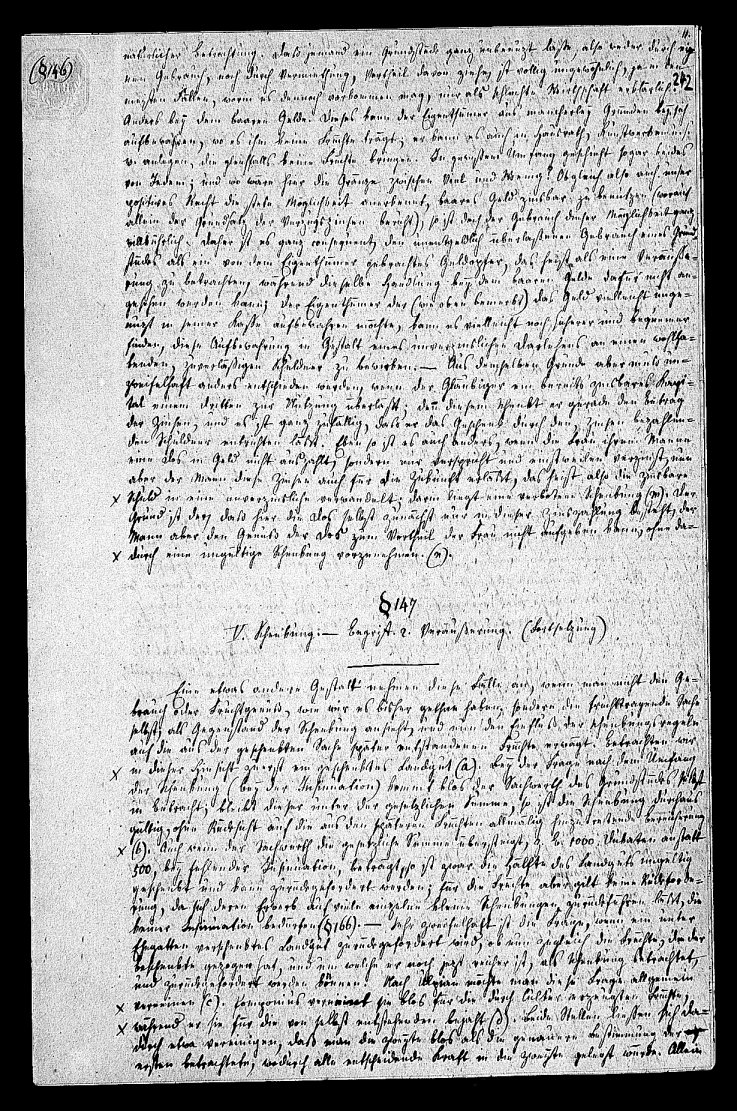 11.
(§146)
242
natürlicher Betrachtung. Daß jemand ein Grundstück ganz unbenutzt lasse, also weder durch eig-
nen Gebrauch, noch durch Vermiethung, Vortheil davon ziehe, ist völlig ungewöhnlich, ja in den
meisten Fällen, worin es dennoch vorkommen mag, nur als schlechte Wirthschaft erklärlich.
Anders bey dem baaren Gelde. Dieses kann der Eigenthümer aus mancherley Gründen bey sich
aufbewahren, wo es ihm keine Früchte trägt; er kann es auch in Hausrath, Kunstwerken u. s.
w. anlegen, die gleichfalls keine Früchte bringen. In gewissem Umfang geschieht sogar beides
von Jedem; und wo wäre hier die Gränze zwischen Viel und Wenig? Obgleich also auch unser
positives Recht die stete Möglichkeit anerkennt, baares Geld zinsbar zu benützen (worauf
allein der Grundsatz der Verzugszinsen beruht), so ist doch der Gebrauch dieser Möglichkeit ganz
willkührlich. Daher ist es ganz consequent, den unentgeldlich überlassenen Gebrauch eines Grund-
stücks als ein von dem Eigenthümer gebrachtes Geldopfer, das heißt als eine Veräuße-
rung zu betrachten, während dieselbe Handlung bey dem baaren Gelde dafür nicht an-
gesehen werden kann; der Eigenthümer der (wie oben bemerkt) das Geld vielleicht unge-
nutzt in seiner Kasse aufbewahren möchte, kann es vielleicht noch sicherer und bequemer
finden, diese Aufbewahrung in Gestalt eines unverzinslichen Darlehens an einen wohlha-
benden, zuverlässigen Schuldner zu bewirken. — Aus demselben Grunde aber muß un-
zweifelhaft anders entschieden werden, wenn der Gläubiger ein bereits zinsbares Kapi-
tal einem Dritten zur Nutzung überläßt; denn diesem schenkt er gerade den Betrag
der Zinsen, und es ist ganz zufällig, daß er das Geschenk durch den, Zinsen bezahlen-
den Schuldner entrichten läßt. Eben so ist es auch anders, wenn die Frau ihrem Manne
eine Dos in Geld nicht auszahlt, sondern nur verspricht und einstweilen verzinst, nun
aber der Mann diese Zinsen auch für die Zukunft erläßt, das heißt also die zinsbare
x Schuld in eine unverzinsliche verwandelt: darin liegt eine verbotene Schenkung (m). Der
Grund ist der, daß hier die Dos selbst zunächst nur in dieser Zinszahlung besteht, der
Mann aber den Genuß der Dos zum Vortheil der Frau nicht aufgeben kann, ohne da-
x durch eine ungültige Schenkung vorzunehmen. (n).
§147
V. Schenkung. — Begriff. 2. Veräußerung. (Fortsetzung)
Eine etwas andere Gestalt nehmen diese Fälle an, wenn man nicht den Ge-
brauch oder Fruchtgenuß, wie wir es bisher gethan haben, sondern die fruchttragende Sache
selbst, als Gegenstand der Schenkung ansieht, und nun den Einfluß der Schenkungsregeln
auf die aus der geschenkten Sache später entstandenen Früchte erwägt. Betrachten wir
x in dieser Hinsicht zuerst ein geschenktes Landgut (a). Bey der Frage nach dem Umfang
der Schenkung (bey der Insinuation) kommt blos der Sachwerth des Grundstücks selbst
in Betracht; bleibt dieser unter der gesetzlichen Summe, so ist die Schenkung durchaus
gültig, ohne Rücksicht auf die aus den späteren Früchten allmälig hinzutretende Bereicherung
x (b). Auch wenn der Sachwerth die gesetzliche Summe übersteigt, z. B. 1000. Dukaten anstatt
500, bey fehlender Insinuation, beträgt, so ist zwar die Hälfte des Landguts ungültig
geschenkt und kann zurückgefordert werden; für die Früchte aber gilt keine Rückforde-
rung, da sich deren Erwerb auf viele einzelne kleine Schenkungen zurückführen läßt, die
keiner Insinuation bedürfen (§166). — Sehr zweifelhaft ist die Frage, wenn ein unter
Ehegatten verschenktes Landgut zurückgefordert wird, ob nun zugleich die Früchte, die der
Beschenkte gezogen hat, und um welche er noch jetzt reicher ist, als Schenkung betrachtet,
und zurückgefordert werden können. Nach Ulpian möchte man diese Frage allgemein
x verneinen (c). Pomponius verneint sie blos für die durch Cultur erzeugten Früchte,
x während er sie für die von selbst entstehenden bejaht (d). Beide Stellen ließen sich da-
durch etwa vereinigen, daß man die zweyte blos als die genauere Bestimmung der
ersten betrachtete, wodurch alle entscheidende Kraft in die zweyte gelegt würde. Allein